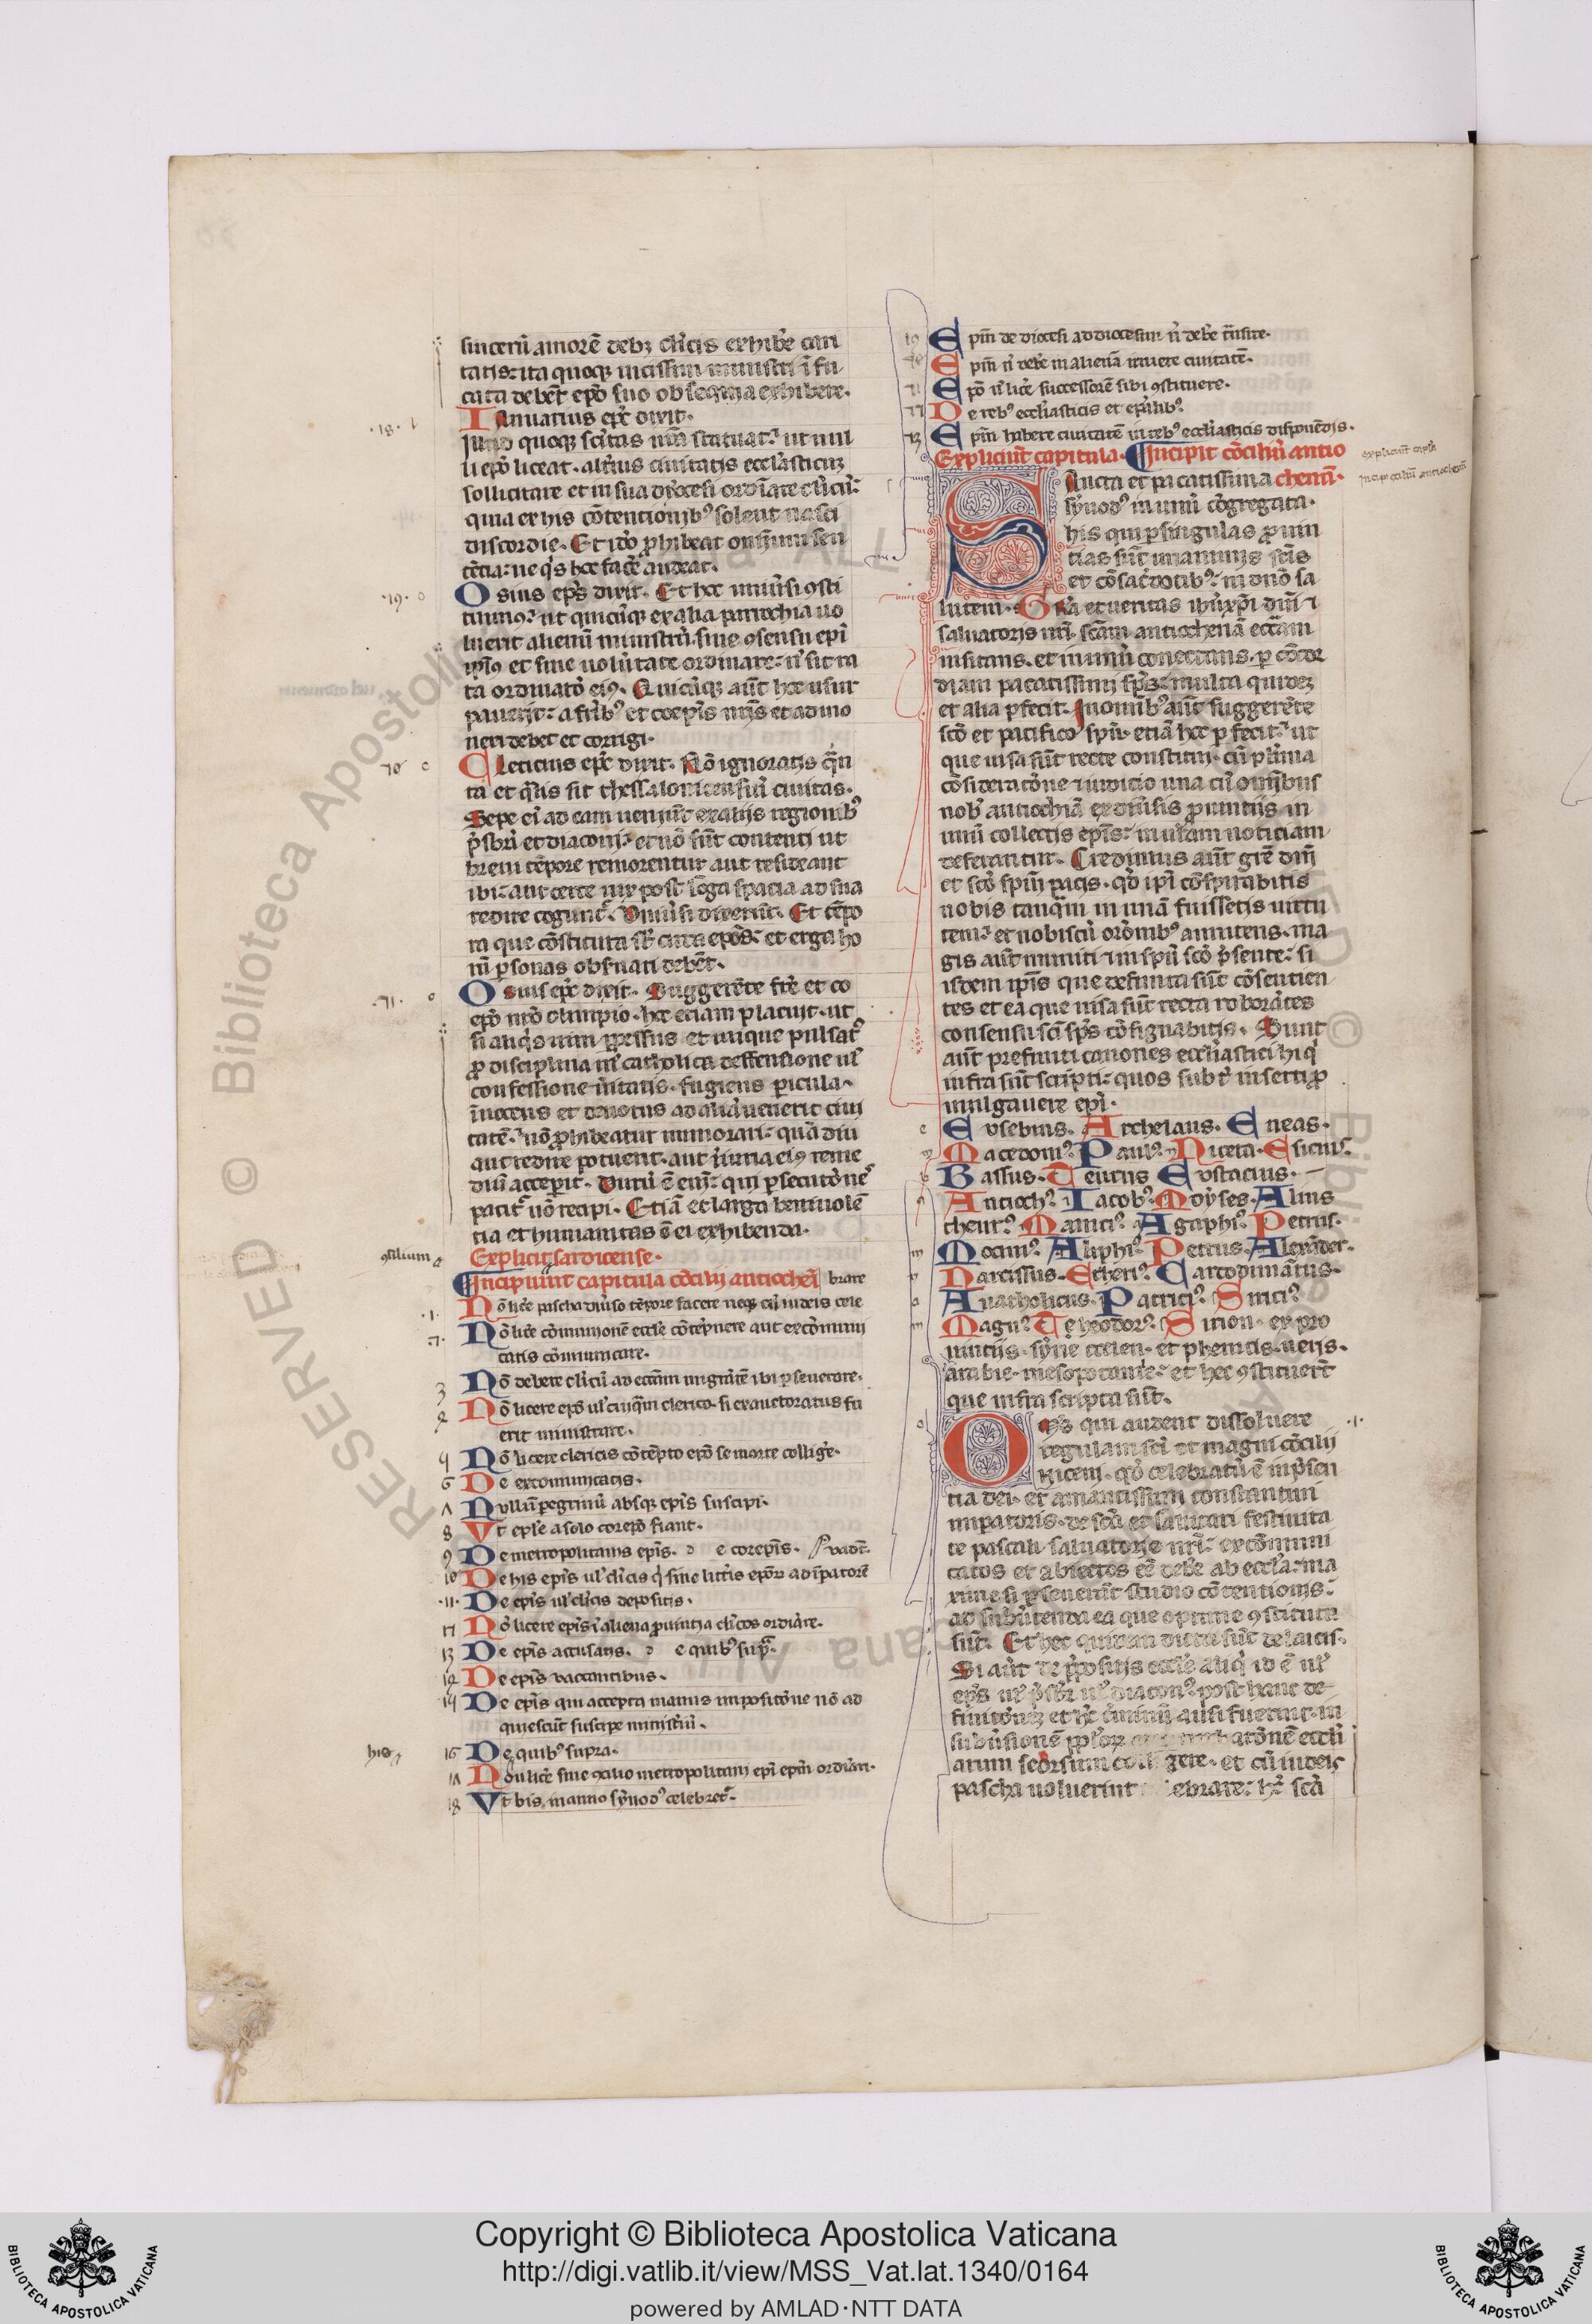 sincerū amorē debꝫ cl'icis exhibe' cari
tatis: ita quoqꝫ uicissim ministri ĩ fu
cata debēt ep̄o suo obsequia exhibere.
Ianuarius ep̄c dixit.
Illud quoqꝫ sc̄itas ur̄a statuat. ut nul
li ep̄o liceat. alt'ius ciuitatis eccl'asticuꝫ
sollicitare et in sua diocesi ordīare cl'icū:
quia ex his cōtentionibꝰ solent nasci
discordie. Et iđo ꝓhibeat omnium sen
tētia: ne q's hoc face' audeat.
Osius ep̄s dixit. Et hoc uniuˀsi ꝯsti
tuimꝰ: ut quicūqꝫ ex alia parrochia uo
luerit alienū ministrū. sine ꝯsensu ep̄i
ip̄iꝰ et sine uolūtate ordinare: n̄ sit ra
ta ordinatō eiꝰ. Quicūqꝫ aūt hoc usur
pauerit: a fr̄ibꝰ et coep̄is nr̄is et admo
neri debet et corrigi.
18
19
20
Aeticius ep̄c dixit. Nō ignoratis q̄n
ta et q̄lis sit thessalonicensiū ciuitas.
Sepe ei ad eam ueniūt ex alijs regionibꝰ
p̄sbr̄i et diaconi: et nō sūt contenti ut
breui tēpore remorentur aut resideant
ibi: aut certe uix post lōga spacia ad sua
redire cogunt'. Uniuˀsi dixerūt. Et tēpo
ra que cōstituta st̄ circa ep̄os: et erga ho
rū ꝑsonas obseruari debēt.
21
Osius ep̄c dixit. Suggerēte fr̄e et co
ep̄o nr̄o olimpio. hoc eciam placuit. ut
si aliq's uim ꝑpessus et inique pulsatꝰ
ꝓ disciplina ul' catholica deffensione ul'
confessione uˀitatis. fugiens pericula.
īnocens et deuotus ad aliā uenerit ciui
tatē. nō ꝓhibeatur inmorari: quādiu
aut redire potuerit. aut iniuria eiꝰ reme
diū acceperit. Durū ē enī: qui ꝑsecutōnē
patit' nō recipi. Etiā et larga beniuolē
tia et humanitas ē ei exhibenda.
Explicit sardicense.
ꝯsilium
Incipiunt capitula cōcilij antiochen̄
Nō lice' pascha diuˀso tēpore facere neqꝫ cū iudeis cele
brare
Nō lice' cōmunionē eccl'e cōtēpnere aut excōmuni
catis cōmunicare.
Nō debere cl'icū ad eccl'am migrātē ibi ꝑseuerare.
Nō licere ep̄o ul' cuiq̄m clerico. si exauctoratus fu
erit ministrare.
Nō licere clericis cōtēpto ep̄o seorsum collige'.
De excomunicatis.
Nullū ꝑegrinū absqꝫ ep̄is suscipi.
Vt ep̄le a solo corep̄o fiant.
De metropolitanis ep̄is. De corep̄is. uadt.
De his ep̄is ul' cl'icis q' sine litt'is ep̄oꝝ ad īpatorē
De ep̄is ul' cl'icis depositis.
Nō licere ep̄is ĩ aliena ꝓuintia cl'icos ordiāre.
De ep̄is accusatis. De quibꝰ supᵃ.
De ep̄is vaccantibus.
De ep̄is qui accepta manus impositōne nō ad
quiescūt suscipe' ministˀiū.
his
De quibꝰ supra.
Non lice' sine ꝯcilio metropolitani ep̄i ep̄m ordīari.
Vt bis in anno synodꝰ celebret'.
Ep̄m de diocesi ad diocesim n̄ debe' t̄nsire.
Ep̄m n̄ debe' in alienā irruere ciuitatē.
Ep̄o n̄ lice' successorē sibi ꝯstituere.
De rebꝰ eccl'iasticis et ep̄alibꝰ.
Ep̄m habere ciuitatē in rebꝰ eccl'iasticis disponēdis.
Expliciūt capitula. Incipit cōciliū antio
chenū.
Sancta et pacatissima
synodꝰ in unū cōgregata.
his qui ꝑ singulas ꝓuin
tias sūt unanimis sc̄is
et cōsac̄dotibꝰ: in dn̄o sa
lutem. Gr̄a et ueritas ih'u xp̄i dn̄i ⁊
saluatoris nr̄i. sc̄am antiochenā eccl'am
uisitans. et in unū conectans. ꝑ cōcor
diam pacatissimi sp̄s: multa quideꝫ
et alia ꝑfecit. In omībꝰ aūt suggerēte
sc̄o et pacifico sp̄u. etiā hoc ꝑfecit: ut
que uisa sūt recte constitui. cū plˀima
cōsideratōne ⁊ iudicio una cū omnibus
nob' antiochiā ex diuˀsis ꝓuintijs in
unū collectis ep̄is: in ur̄am noticiam
deferantur. Credimus aūt gr̄e dn̄i
et sc̄o sp̄ui pacis. qd' ip̄i cōspirabitis
nobis tanq̄m in unā fuissetis uirtu
tem: et nobiscū orōnibꝰ annitens. ma
gis aūt muniti ⁊ in sp̄u sc̄o p̄sente: si
isdem ip̄is que definita sūt cōsentien
tes et ea que uisa sūt recta roborātes
consensu sc̄i sp̄s cōsignabitis. Sunt
aūt prefiniti canones eccl'iastici hi q'
infra sūt scripti: quos subt' inserti ꝓ
mulgauere ep̄i.
Eusebius. Archelaus. Eneas.
Macedoniꝰ. Paulꝰ. Niceta. Esiciꝰ.
Bassus. Teucijs Eustacius.
Antiochꝰ. Iacobꝰ. Moyses. Alius
theutꝰ. Maniciꝰ. Agaphiꝰ. Petrus.
Mociniꝰ. Aliphiꝰ. Petrus. Alexāder.
Narcissus. Etheriꝰ. Cartodimātus.
Anatholicus. Patriciꝰ. Siriciꝰ
Magnꝰ. Theodorꝰ. Sirion. ex pro
uintijs. syrie celen. et phenicis. ueijs.
arabie. mesopotamie. et hec ꝯstituerūt
que infra scripta sūt.
Om̄s qui audent dissoluere
regulam sc̄i et magni cōcilij
Niceni. qd' celebratū ē in p̄sen
tia dei. et amantissimi constantini
imperatoris. de sc̄a et salutari festiuita
te pascali saluatoris nr̄i: excōmuni
catos et abiectos eē debe' ab eccl'a: ma
xime si ꝑseuerāt studio cōtentionis:
ad subuˀtenda ea que optime ꝯstituta
sūt. Et hec quidem dicta sūt de laicis.
Si aūt de p̄positis eccl'e aliq' id ē ul'
ep̄s ul' p̄sbr̄ ul' diaconꝰ post hanc de
finitōneꝫ
arum seorsum colligere. et cū iudeis
pascha uoluerint celebrare: hc̄ sc̄a
Copyright © Biblioteca Apostolica Vaticana
http://digi.vatlib.it/view/MSS_Vat.lat.1340/0164
powered by AMLAD·NTT DATA
BIBLIOTECA APOSTOLICA VATICANA
BIBLIOTECA APOSTOLICA VATICANA